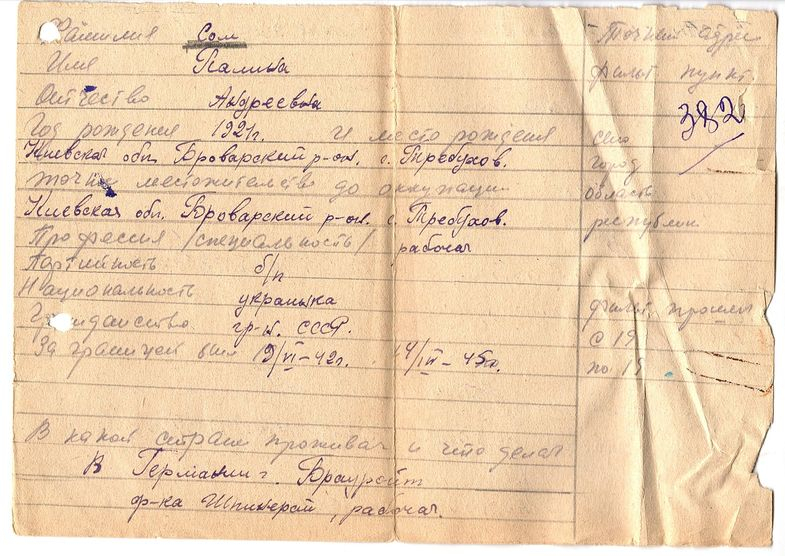 Фамилия Сом
Имя Галина
Отчество Андреевна
Год рождения 1921г. и место рождения
Киевская обл. Броварский р-он. с. Требухов.
точн. местожительства до оккупации
Киевская обл. Броварский р-он. с. Требухов.
Профессия /специальность/ рабочая
Партийность б/п
Национальность украинка
Гражданство гр-н. СССР.
За границей был 19/VI-42г. 14/III-45г.
В какой стране проживал и что делал
В Германии г.
ф-ка рабочая.
Точный адрес
фильт. пункт.
382
село
город
область
республик
фильт. прошел
с 19
по 19